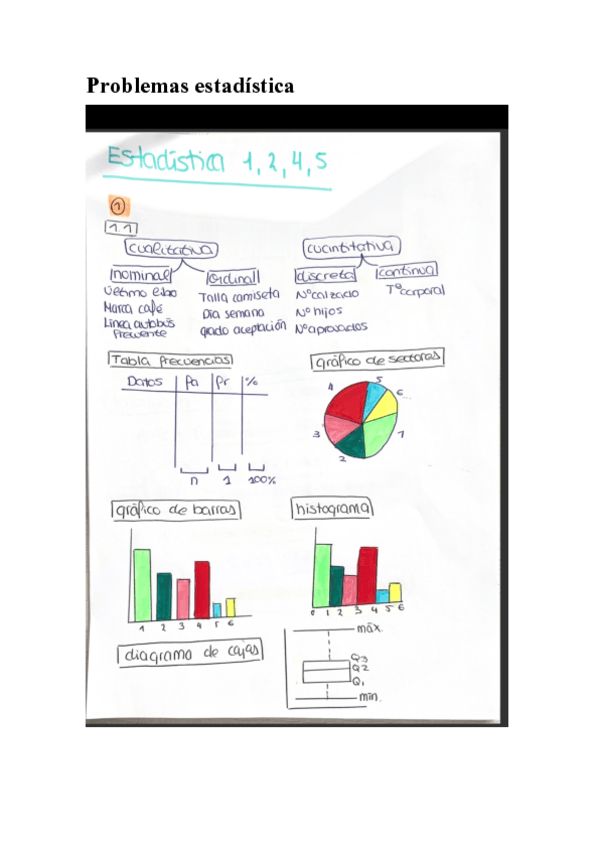 Problemas estadística
Estadística 1, 2, 4, 5
1
1.1
cualitativa
cuantitativa
nominal
ordinal
discreta
continua
Talla camiseta
Nº calzado
Tª corporal
Marca café
Día semana
Nº hijos
Línea autobús
frecuente
grado aceptación
Nº aprovados
Tabla frecuencias
gráfico de sectores
Datos
fa
fr
%
n
1
100%
4
5
6
...
3
1
2
gráfico de barras
histograma
1 2 3 4 5 6
0 1 2 3 4 5 6
diagrama de cajas
máx.
Q3
Q2
Q1
mín.